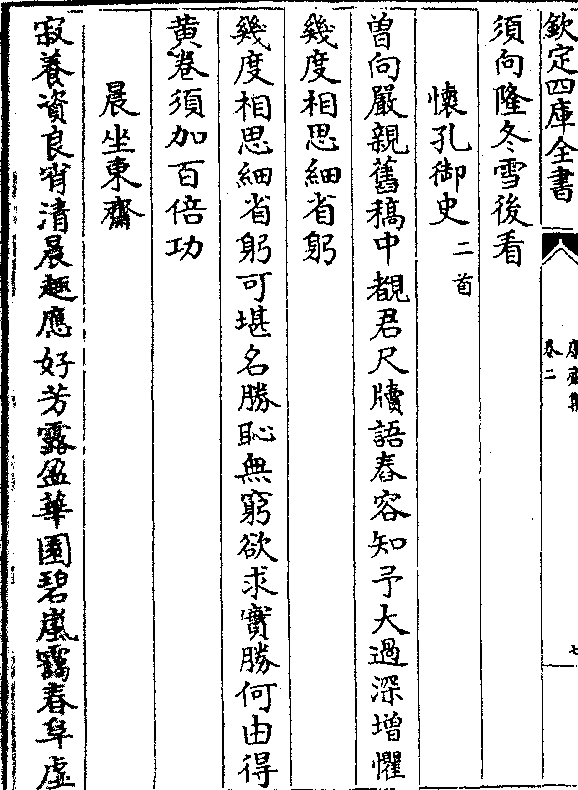 欽定四庫全書
康齋集
卷二
七
須向隆冬雪後看
懷孔御史 二首
曽向嚴親舊稿中覩君尺牘語舂容知予大過深增懼
幾度相思細省躬
幾度相思細省躬可堪名勝恥無窮欲求實勝何由得
黄卷須加百倍功
晨坐東齋
寂養資良宵清晨趣應好芳露盈華園碧嵐靄春阜虛